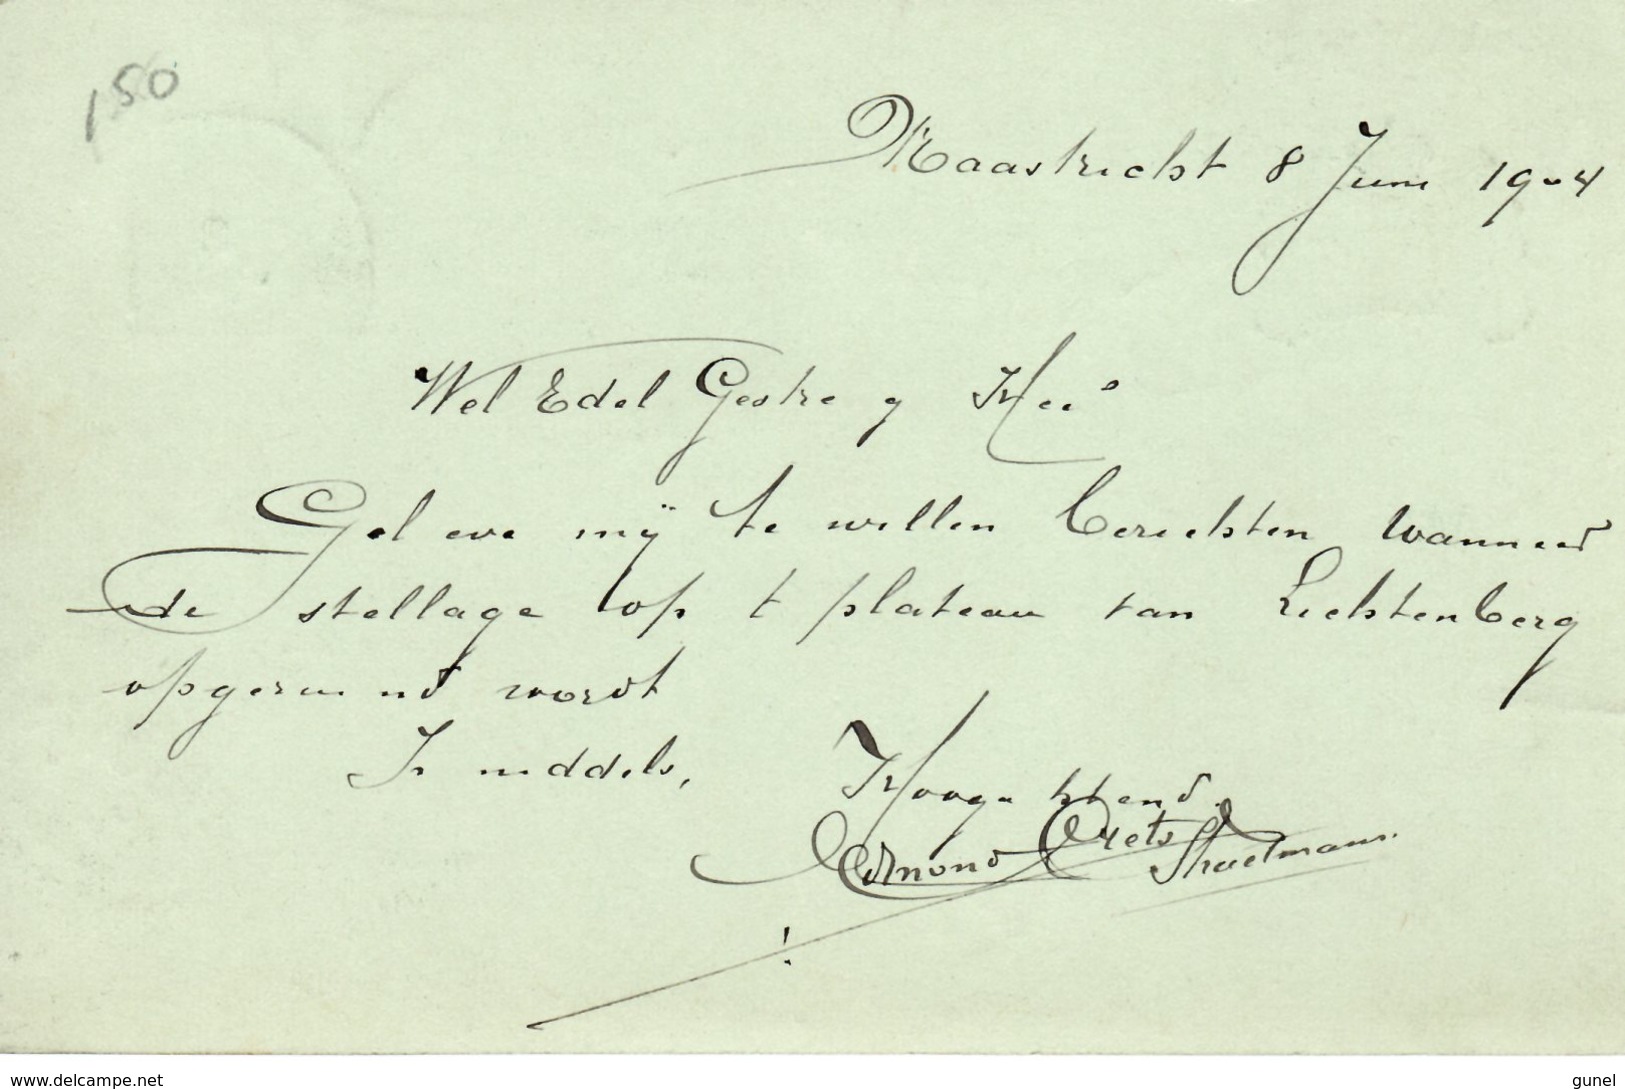 150
Maastricht 8 Juni 1904
Wel Edel Gestreng Heer
Gelieve mij te willen berichten wanneer
de stellage op t plateau van Lichtenberg
opgeruimd wordt
Inmiddels,
Hoogachtend.
Edmond Crets
www.delcampe.net
gunel